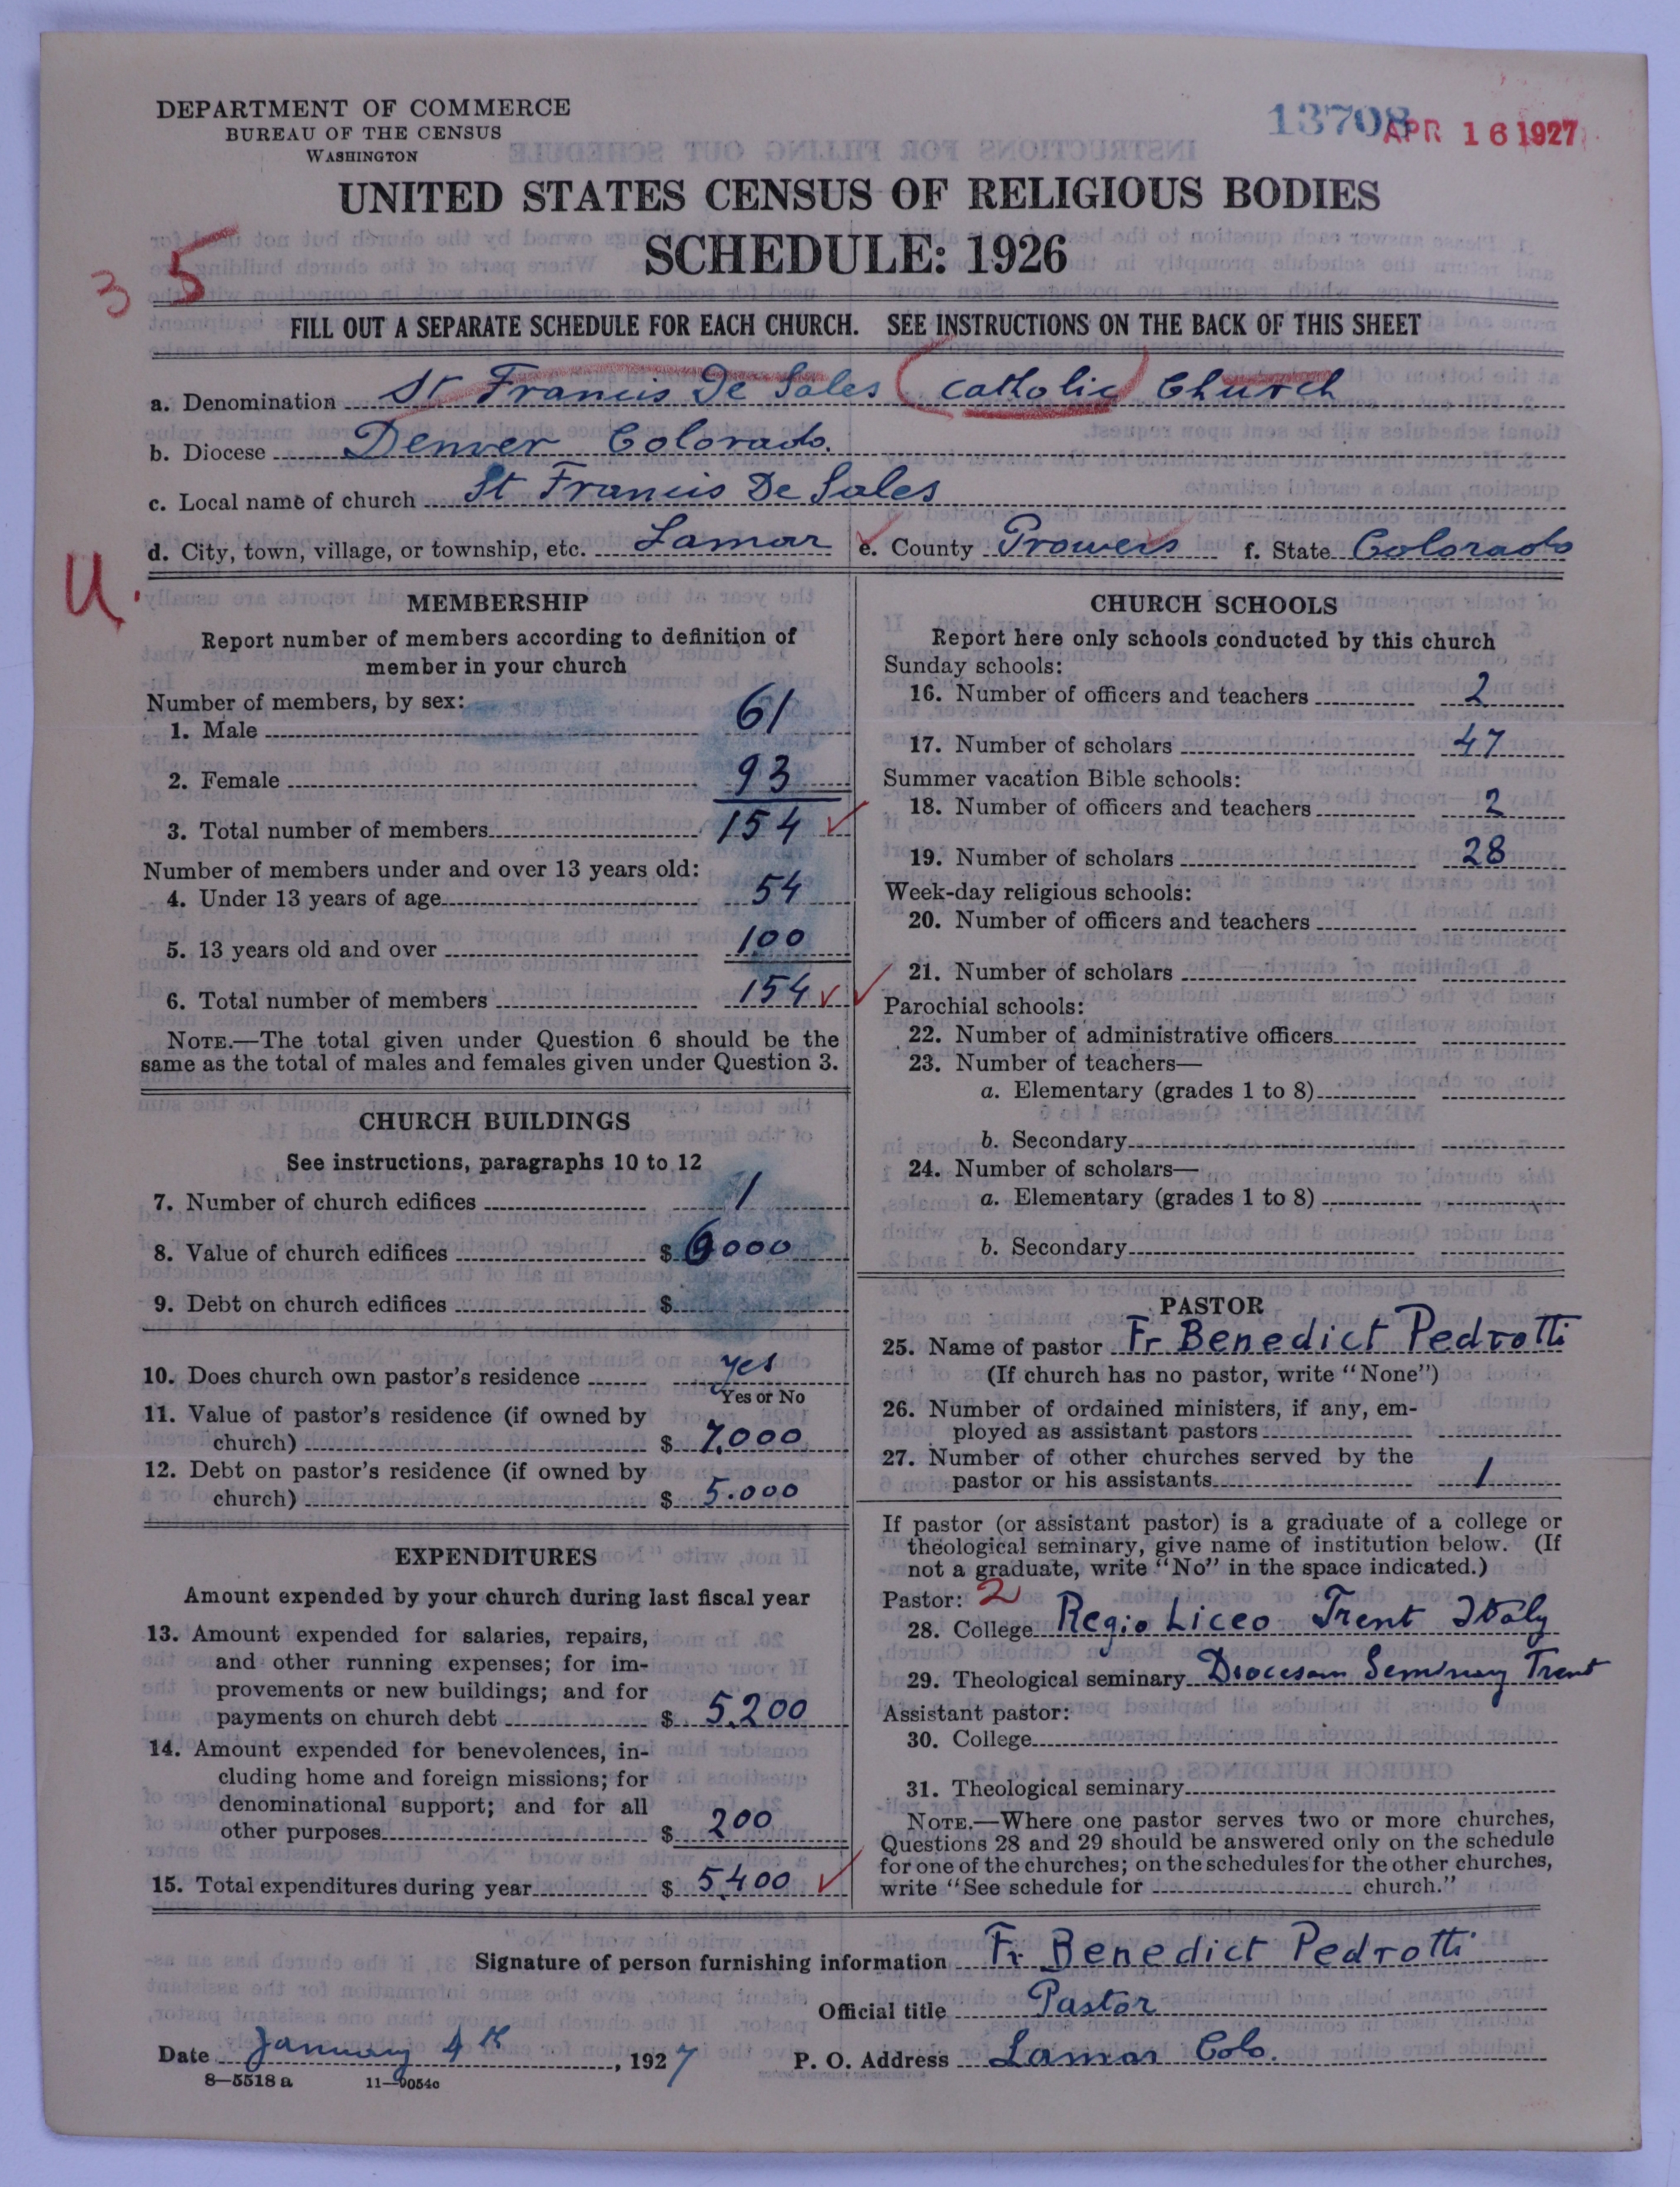 DEPARTMENT OF COMMERCE
BUREAU OF THE CENSUS
WASHINGTON
13708
APR 16 1927
UNITED STATES CENSUS OF RELIGIOUS BODIES
SCHEDULE: 1926
3 5
FILL OUT A SEPARATE SCHEDULE FOR EACH CHURCH. SEE INSTRUCTIONS ON THE BACK OF THIS SHEET
a. Denomination St Francis De Sales (Catholic) Church
b. Diocese Denver Colorado.
c. Local name of church St Francis De Sales
d. City, town, village, or township, etc. Lamar e. County Prowers f. State Colorado
U.
MEMBERSHIP
Report number of members according to definition of
member in your church
Number of members, by sex:
1. Male 61
2. Female 93
3. Total number of members 154 ✓
Number of members under and over 13 years old:
4. Under 13 years of age 54
5. 13 years old and over 100
6. Total number of members 154 ✓ ✓
NOTE.—The total given under Question 6 should be the
same as the total of males and females given under Question 3.
CHURCH BUILDINGS
See instructions, paragraphs 10 to 12
7. Number of church edifices 1
8. Value of church edifices $ 6000
9. Debt on church edifices $
10. Does church own pastor's residence yes
Yes or No
11. Value of pastor's residence (if owned by
church) $ 7.000
12. Debt on pastor's residence (if owned by
church) $ 5.000
EXPENDITURES
Amount expended by your church during last fiscal year
13. Amount expended for salaries, repairs,
and other running expenses; for im-
provements or new buildings; and for
payments on church debt $ 5.200
14. Amount expended for benevolences, in-
cluding home and foreign missions; for
denominational support; and for all
other purposes $ 200
15. Total expenditures during year $ 5400 ✓
CHURCH SCHOOLS
Report here only schools conducted by this church
Sunday schools:
16. Number of officers and teachers 2
17. Number of scholars 47
Summer vacation Bible schools:
18. Number of officers and teachers 2
19. Number of scholars 28
Week-day religious schools:
20. Number of officers and teachers
21. Number of scholars
Parochial schools:
22. Number of administrative officers
23. Number of teachers—
a. Elementary (grades 1 to 8)
b. Secondary
24. Number of scholars—
a. Elementary (grades 1 to 8)
b. Secondary
PASTOR
25. Name of pastor Fr Benedict Pedrotti
(If church has no pastor, write "None")
26. Number of ordained ministers, if any, em-
ployed as assistant pastors
27. Number of other churches served by the
pastor or his assistants 1
If pastor (or assistant pastor) is a graduate of a college or
theological seminary, give name of institution below. (If
not a graduate, write "No" in the space indicated.)
Pastor: 2
28. College Regio Liceo Trent Italy
29. Theological seminary Diocesan Seminary Trent
Assistant pastor:
30. College
31. Theological seminary
NOTE.—Where one pastor serves two or more churches,
Questions 28 and 29 should be answered only on the schedule
for one of the churches; on the schedules for the other churches,
write "See schedule for church."
Signature of person furnishing information Fr Benedict Pedrotti
Official title Pastor
Date January 4th, 1927 P. O. Address Lamar Colo.
8—5518 a 11—9054c